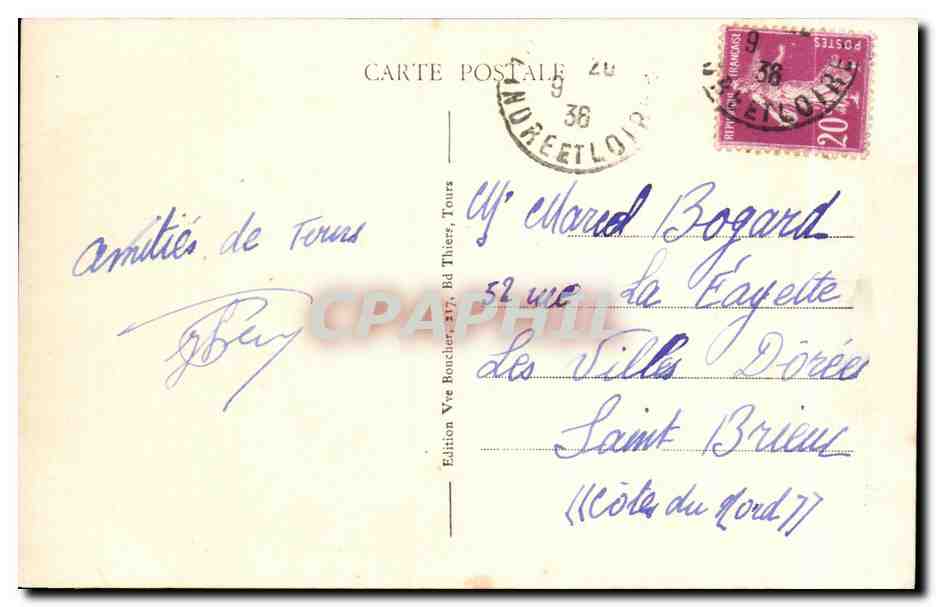 CARTE POSTALE
20
9
38
INDRE ET LOIRE
9
38
ET LOIRE
POSTES
20c
Amitiés de Tours
Mr Marcel Bogard
52 rue La Fayette
Les Villes Dôrées
Saint Brieuc
((Côtes du Nord))
Edition Vve Boucher, 217, Bd Thiers, Tours
CPAPHIL